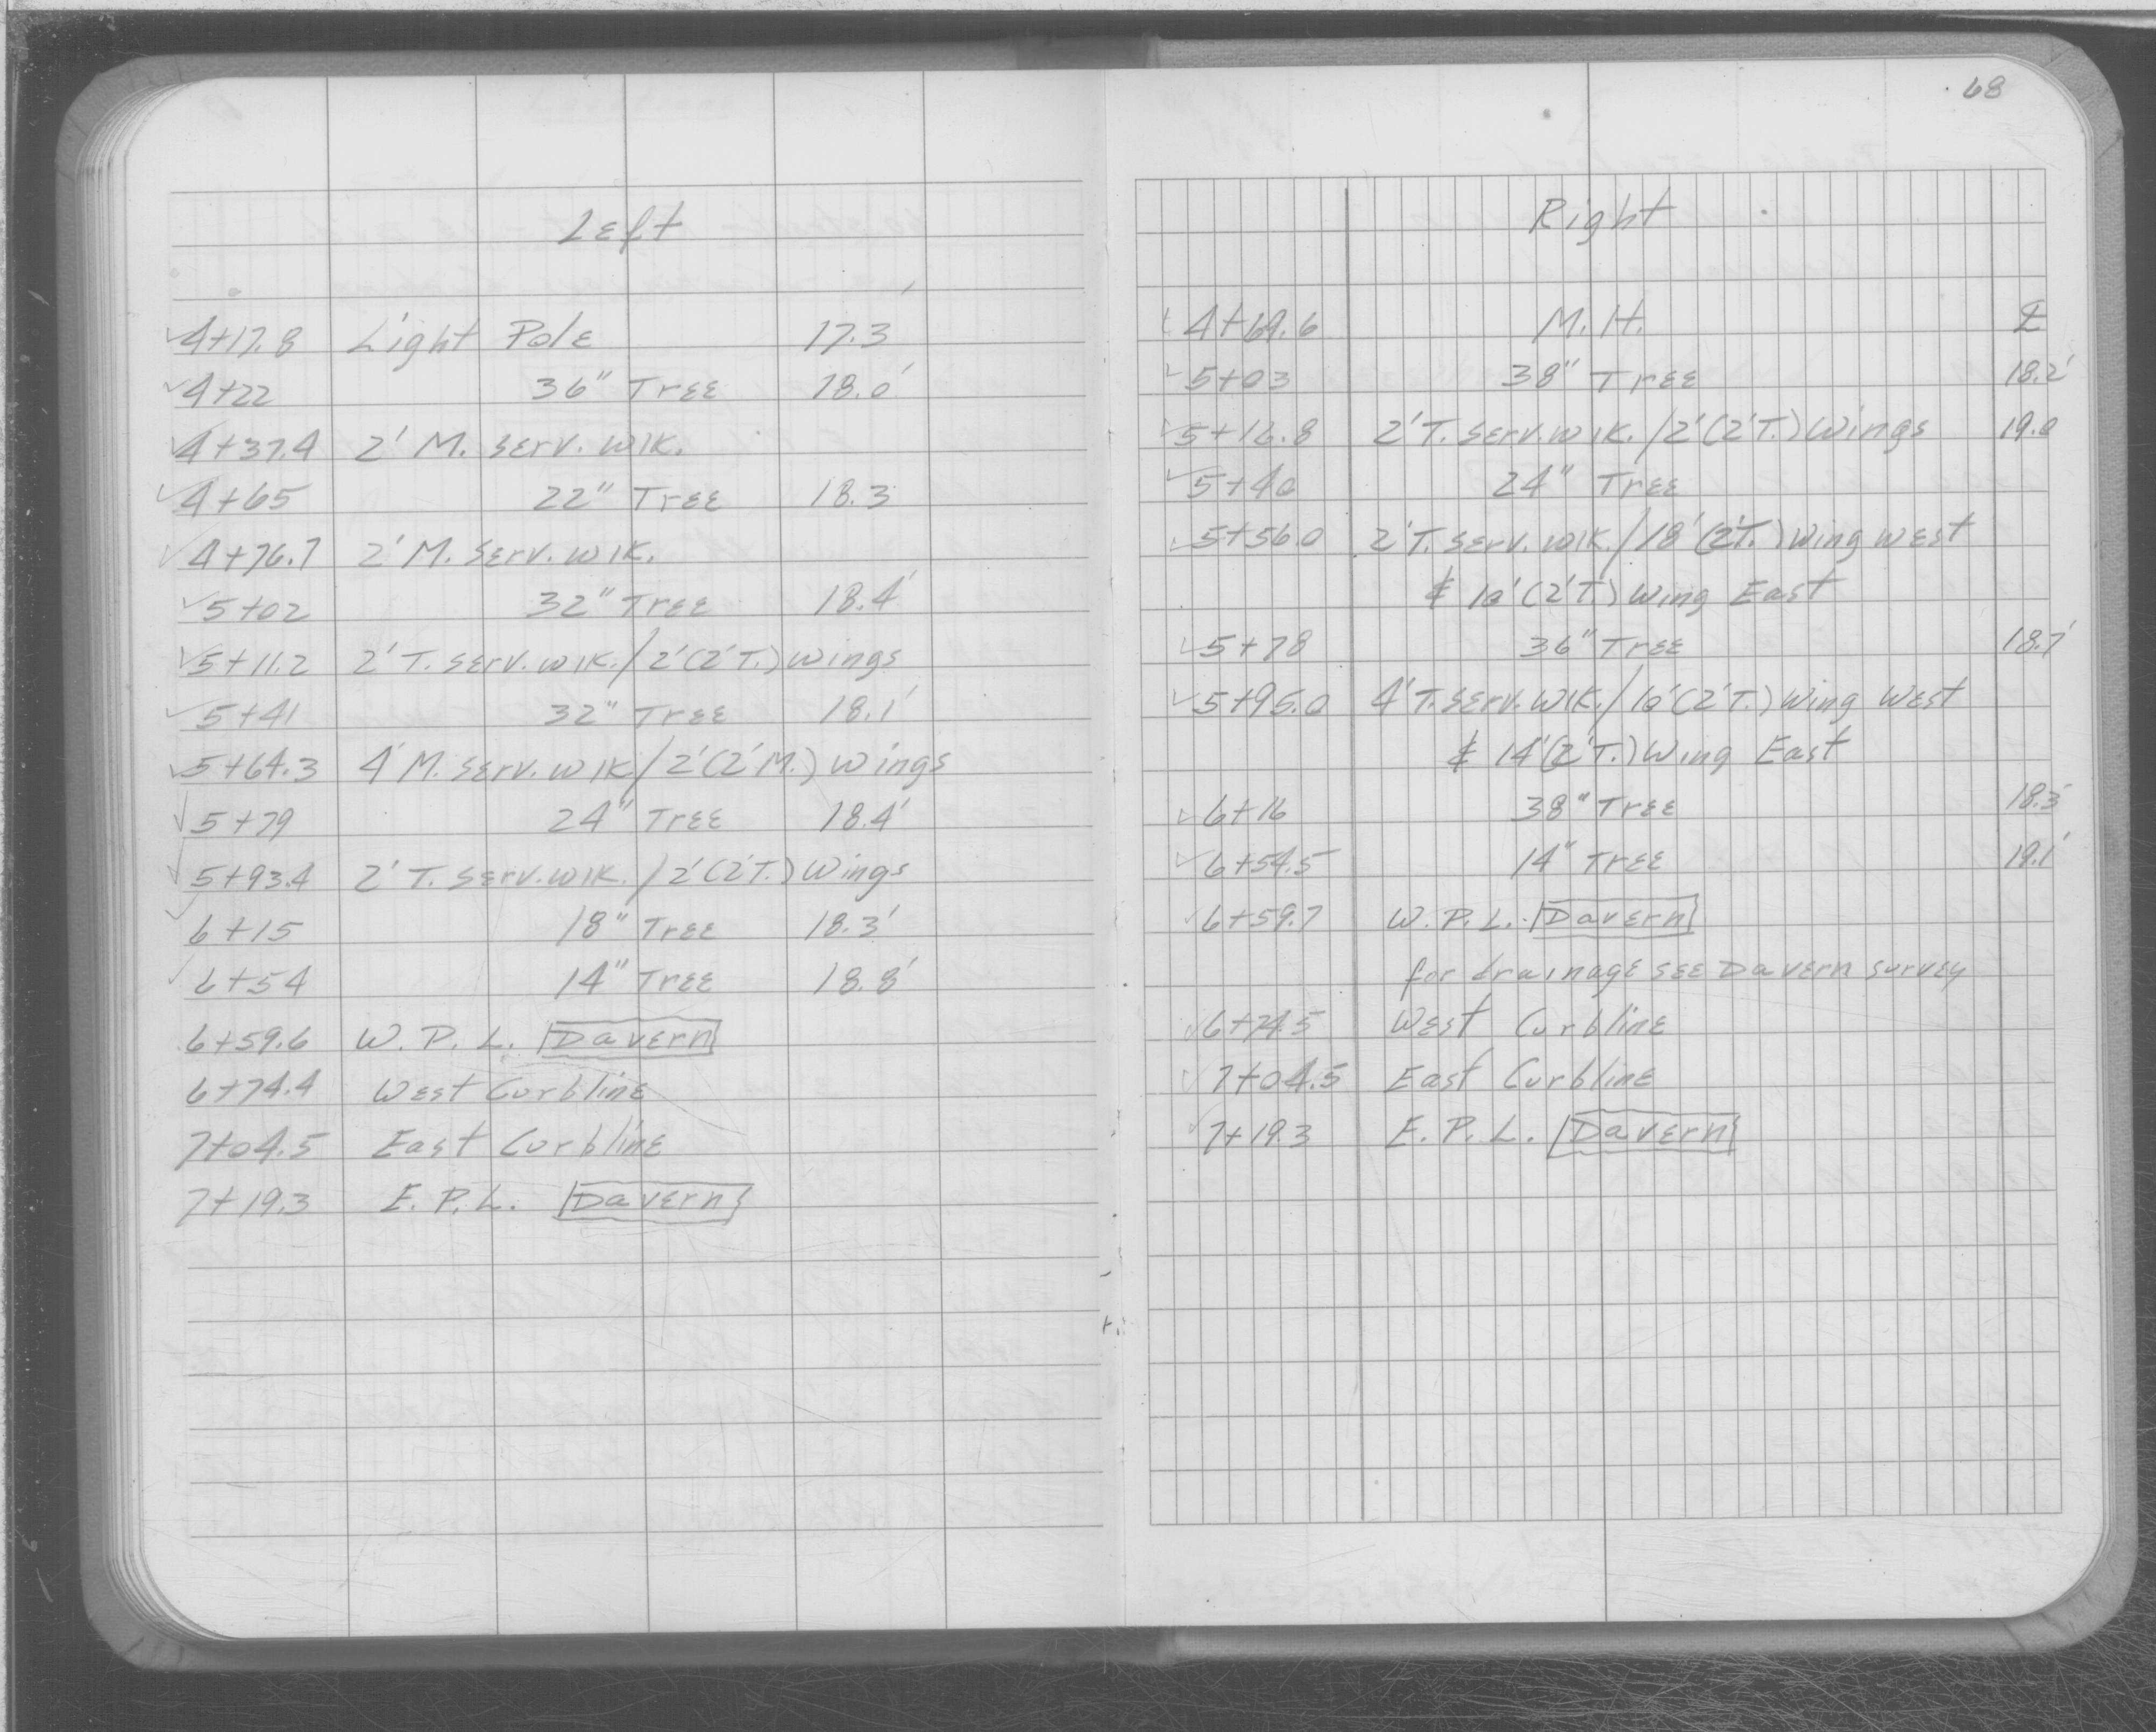 Left
4+17.8 Light Pole 17.3'
4+22 36" Tree 18.0'
4+37.4 2' M. Serv. wlk.
4+65 22" Tree 18.3
4+76.7 2' M. Serv. wlk.
5+02 32" Tree 18.4'
5+11.2 2' T. Serv. wlk. / 2' (2' T.) wings
5+41 32" Tree 18.1'
5+64.3 4' M. Serv. wlk / 2' (2' M.) wings
5+79 24" Tree 18.4'
5+93.4 2' T. Serv. wlk. / 2' (2' T.) Wings
6+15 18" Tree 18.3'
6+54 14" Tree 18.8'
6+59.6 W. P. L. Davern
6+74.4 West Curbline
7+04.5 East Curbline
7+19.3 E. P. L. Davern
68
Right
4+69.6 M. H. ℄
5+03 38" Tree 18.2'
5+16.8 2' T. Serv. wlk. / 2' (2' T.) Wings 19.0
5+40 24" Tree
5+56.0 2' T. Serv. wlk. / 18' (2' T.) Wing west
& 10' (2' T.) Wing East
5+78 36" Tree 18.7'
5+95.0 4' T. Serv. Wlk. / 10' (2' T.) Wing West
& 14' (2' T.) Wing East
6+16 38" Tree 18.3'
6+54.5 14" Tree 19.1'
6+59.7 W. P. L. Davern
for drainage see Davern survey
6+74.5 West Curbline
7+04.5 East Curbline
7+19.3 E. P. L. Davern